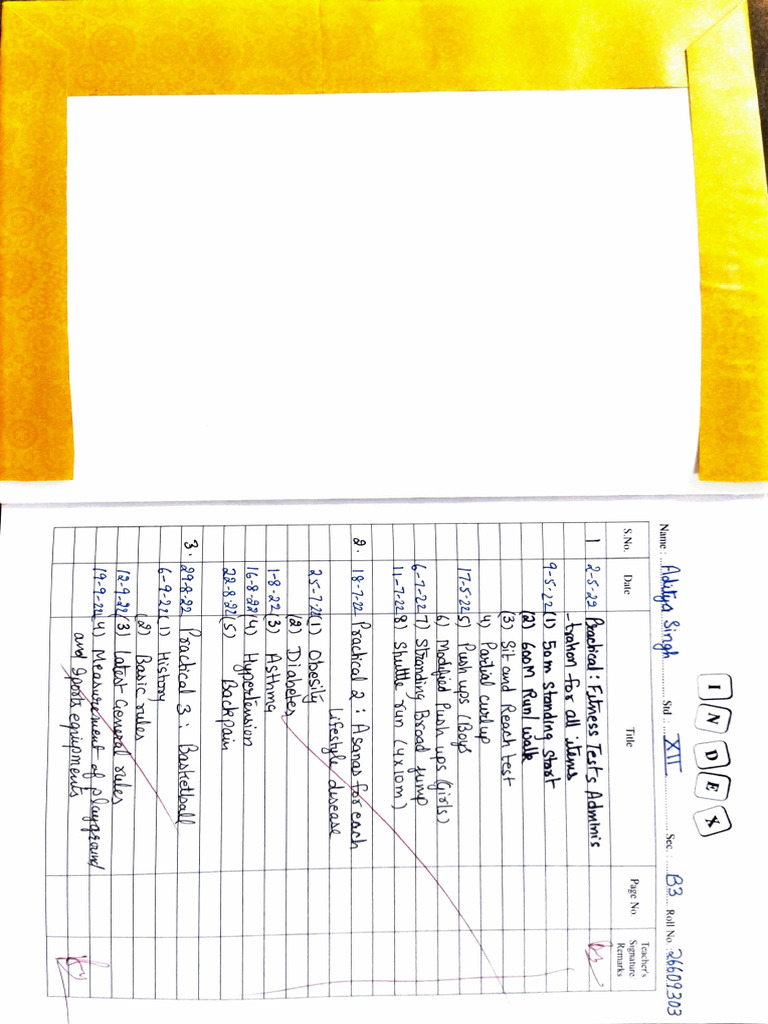 INDEX
Name : Aditya Singh Std : XII Sec. : B3 Roll No. 26609303
S.No. Date Title Page No. Teacher's Signature Remarks
1 2-5-22 Practical : Fitness Tests Adminis
-tration for all items
9-5-22 (1) 50m Standing Start
(2) 600M Run/walk
(3) Sit and Reach test
4) Partial curl up
17-5-22 5) Push ups (Boys
6) Modified Push ups (girls)
6-7-22 7) Stranding Broad Jump
11-7-22 8) Shuttle run (4x10m)
2. 18-7-22 Practical 2 : Asanas for each
Lifestyle disease
25-7-22 (1) Obesity
(2) Diabetes
1-8-22 (3) Asthma
16-8-22 (4) Hypertension
22-8-22 (5) Backpain
3. 29-8-22 Practical 3 : Basketball
6-9-22 (1) History
(2) Basic rules
12-9-22 (3) Latest General rules
19-9-22 (4) Measurement of playground
and sports equipments